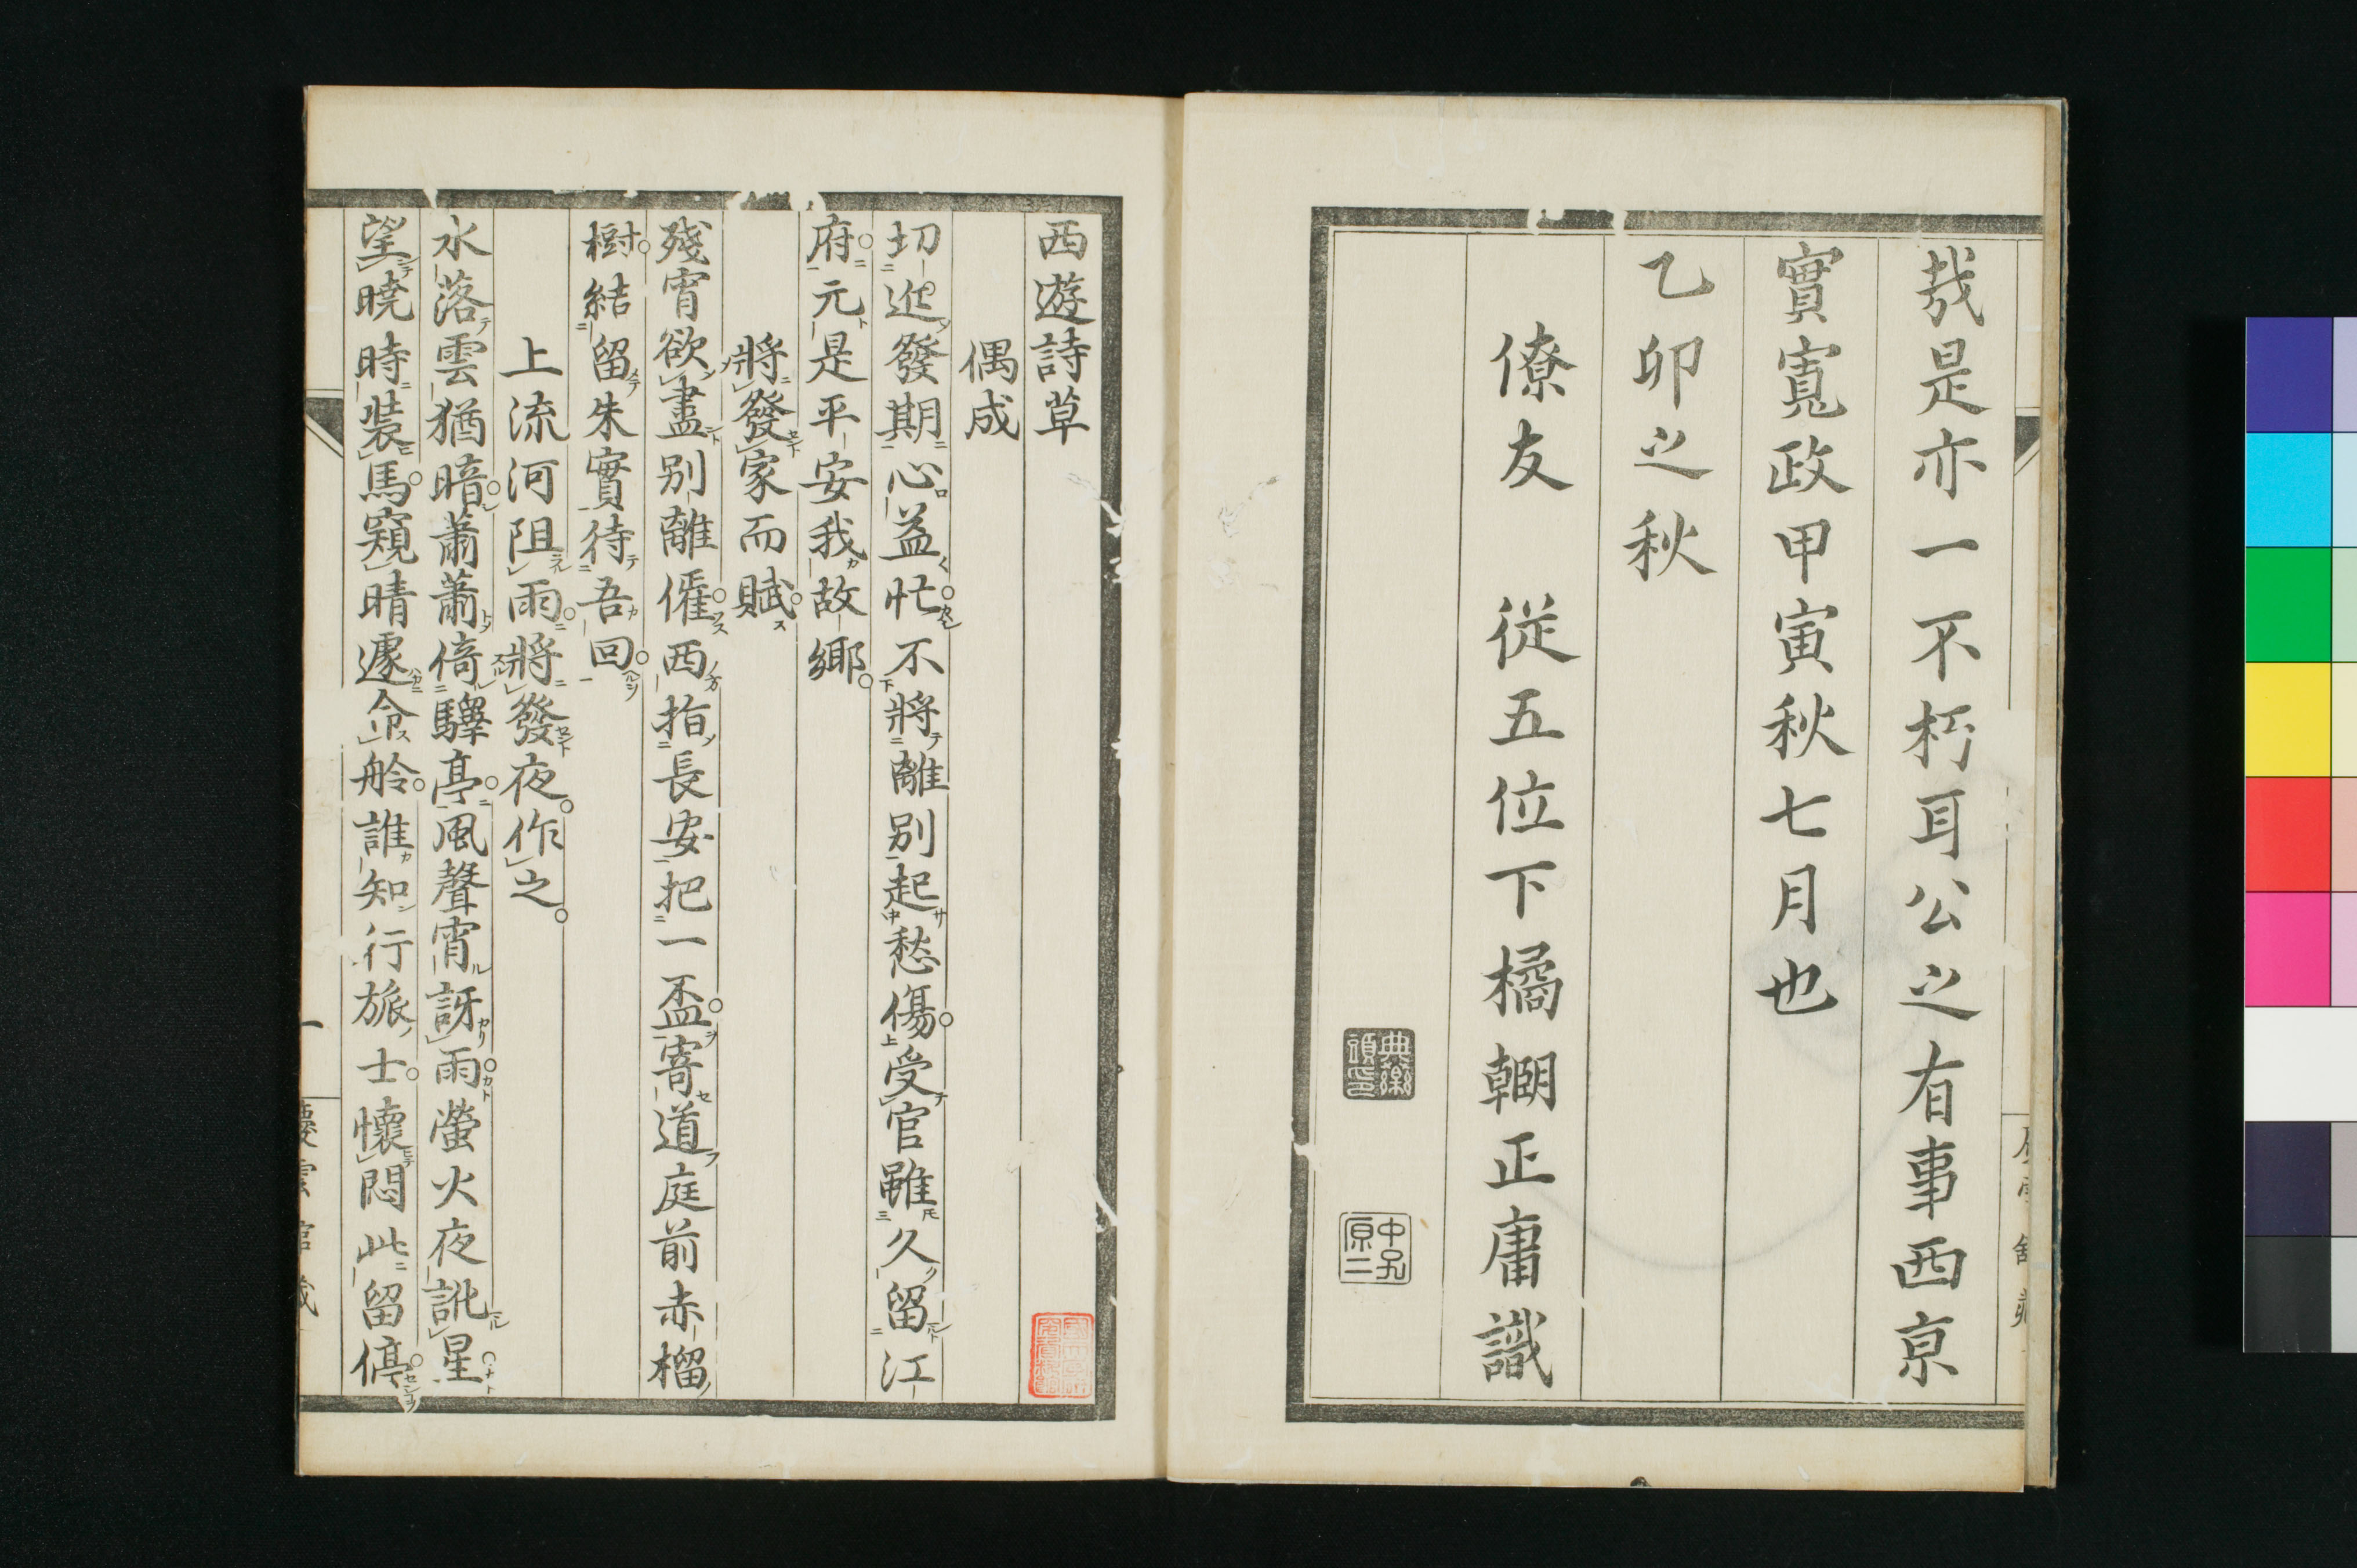 哉是亦一不朽耳公之有事西京
實寬政甲寅秋七月也
乙卯之秋
僚友 従五位下橘輙正庸識
西遊詩草
偶成
切近發期心益忙不將離別起愁傷受官雖久留江
府元是平安我故鄉
將發家而賦
殘宵欲盡別離催西指長安把一盃寄道庭前赤榴
樹結留朱實待吾回
上流河阻雨將發夜作之
水落雲猶暗蕭蕭倚驛亭風聲宵訝雨螢火夜訛星
望曉時裝馬窺晴遽命舲誰知行旅士懷悶此留停
一